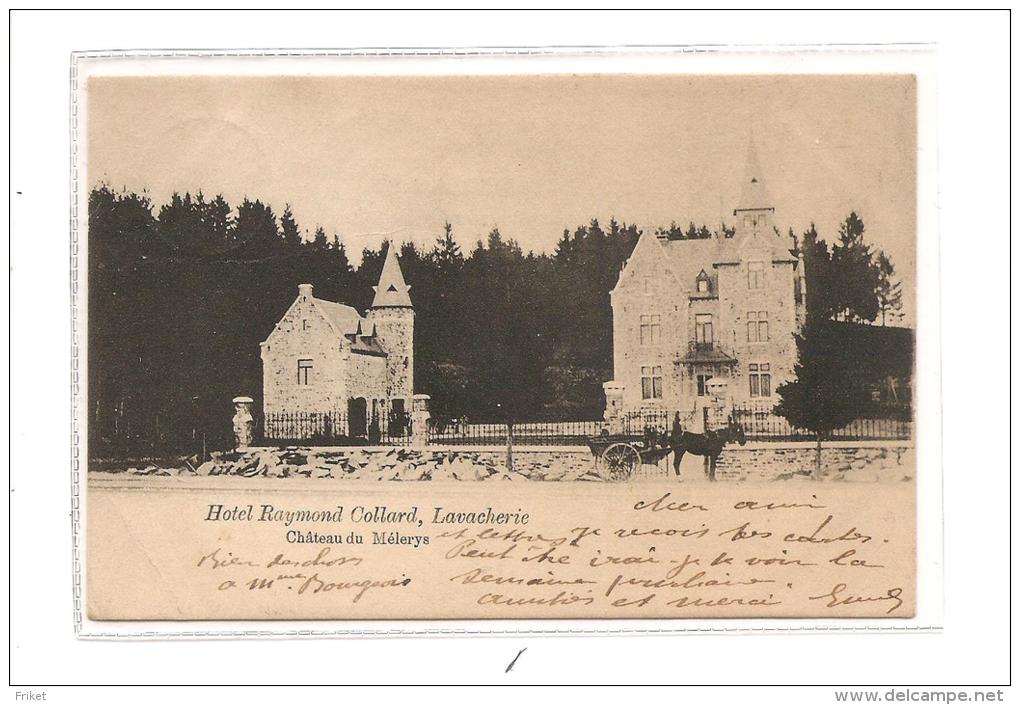 Hotel Raymond Collard, Lavacherie
Château du Mélerys
Cher ami
et lettres je reçois tes cartes.
Peut être irai je te voir la
semaine prochaine.
amitiés et merci
Bien des chos
a Mme Bourgeois
Friket
www.delcampe.net